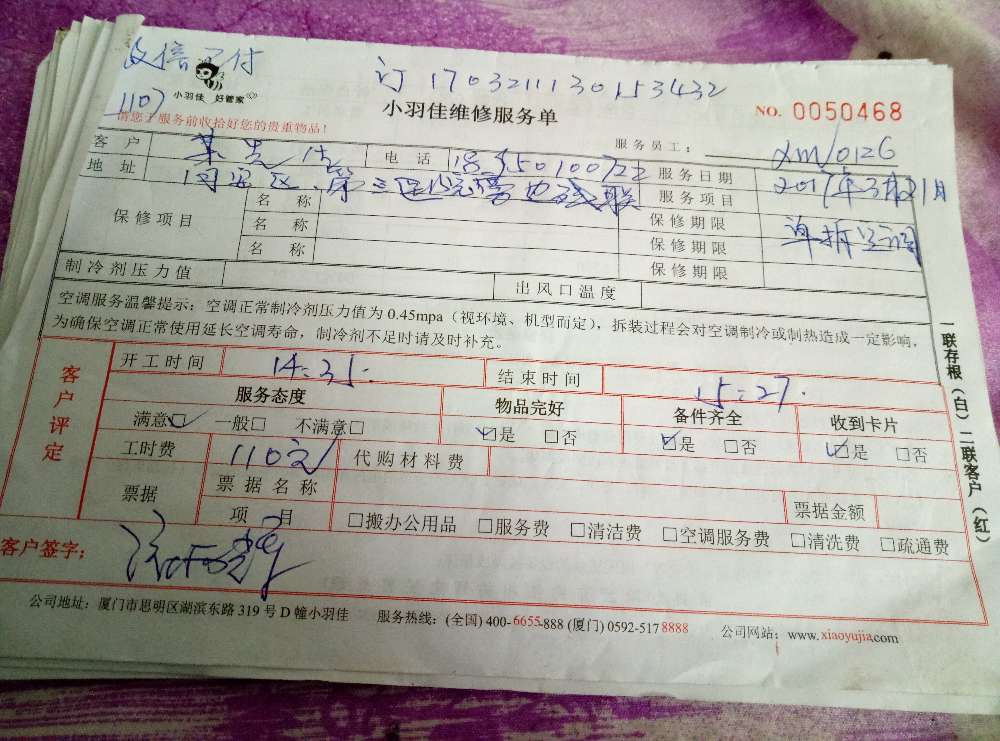 微信已付
订 1703211130153432
小羽佳 好管家
1107
小羽佳维修服务单
NO. 0050468
请您上服务前收拾好您的贵重物品!
服务员工: XM/0126
客户 先生 电话 服务日期 2017年3月21日
地址 同安区 第三医院 服务项目 单拆空调
保修项目 名称 保修期限
名称 保修期限
名称 保修期限
制冷剂压力值 出风口温度
空调服务温馨提示:空调正常制冷剂压力值为 0.45mpa(视环境、机型而定),拆装过程会对空调制冷或制热造成一定影响,
为确保空调正常使用延长空调寿命,制冷剂不足时请及时补充。
客户评定
开工时间 14:35 结束时间 15:27
服务态度 物品完好 备件齐全 收到卡片
满意☑ 一般□ 不满意□ ☑是 □否 ☑是 □否 ☑是 □否
工时费 110元 代购材料费
票据 票据名称 票据金额
项目 □搬办公用品 □服务费 □清洁费 □空调服务费 □清洗费 □疏通费
客户签字:
公司地址:厦门市思明区湖滨东路 319 号 D 幢小羽佳 服务热线:(全国) 400-6655-888 (厦门) 0592-517 8888 公司网站:www.xiaoyujia.com
一联存根(白)二联客户(红)